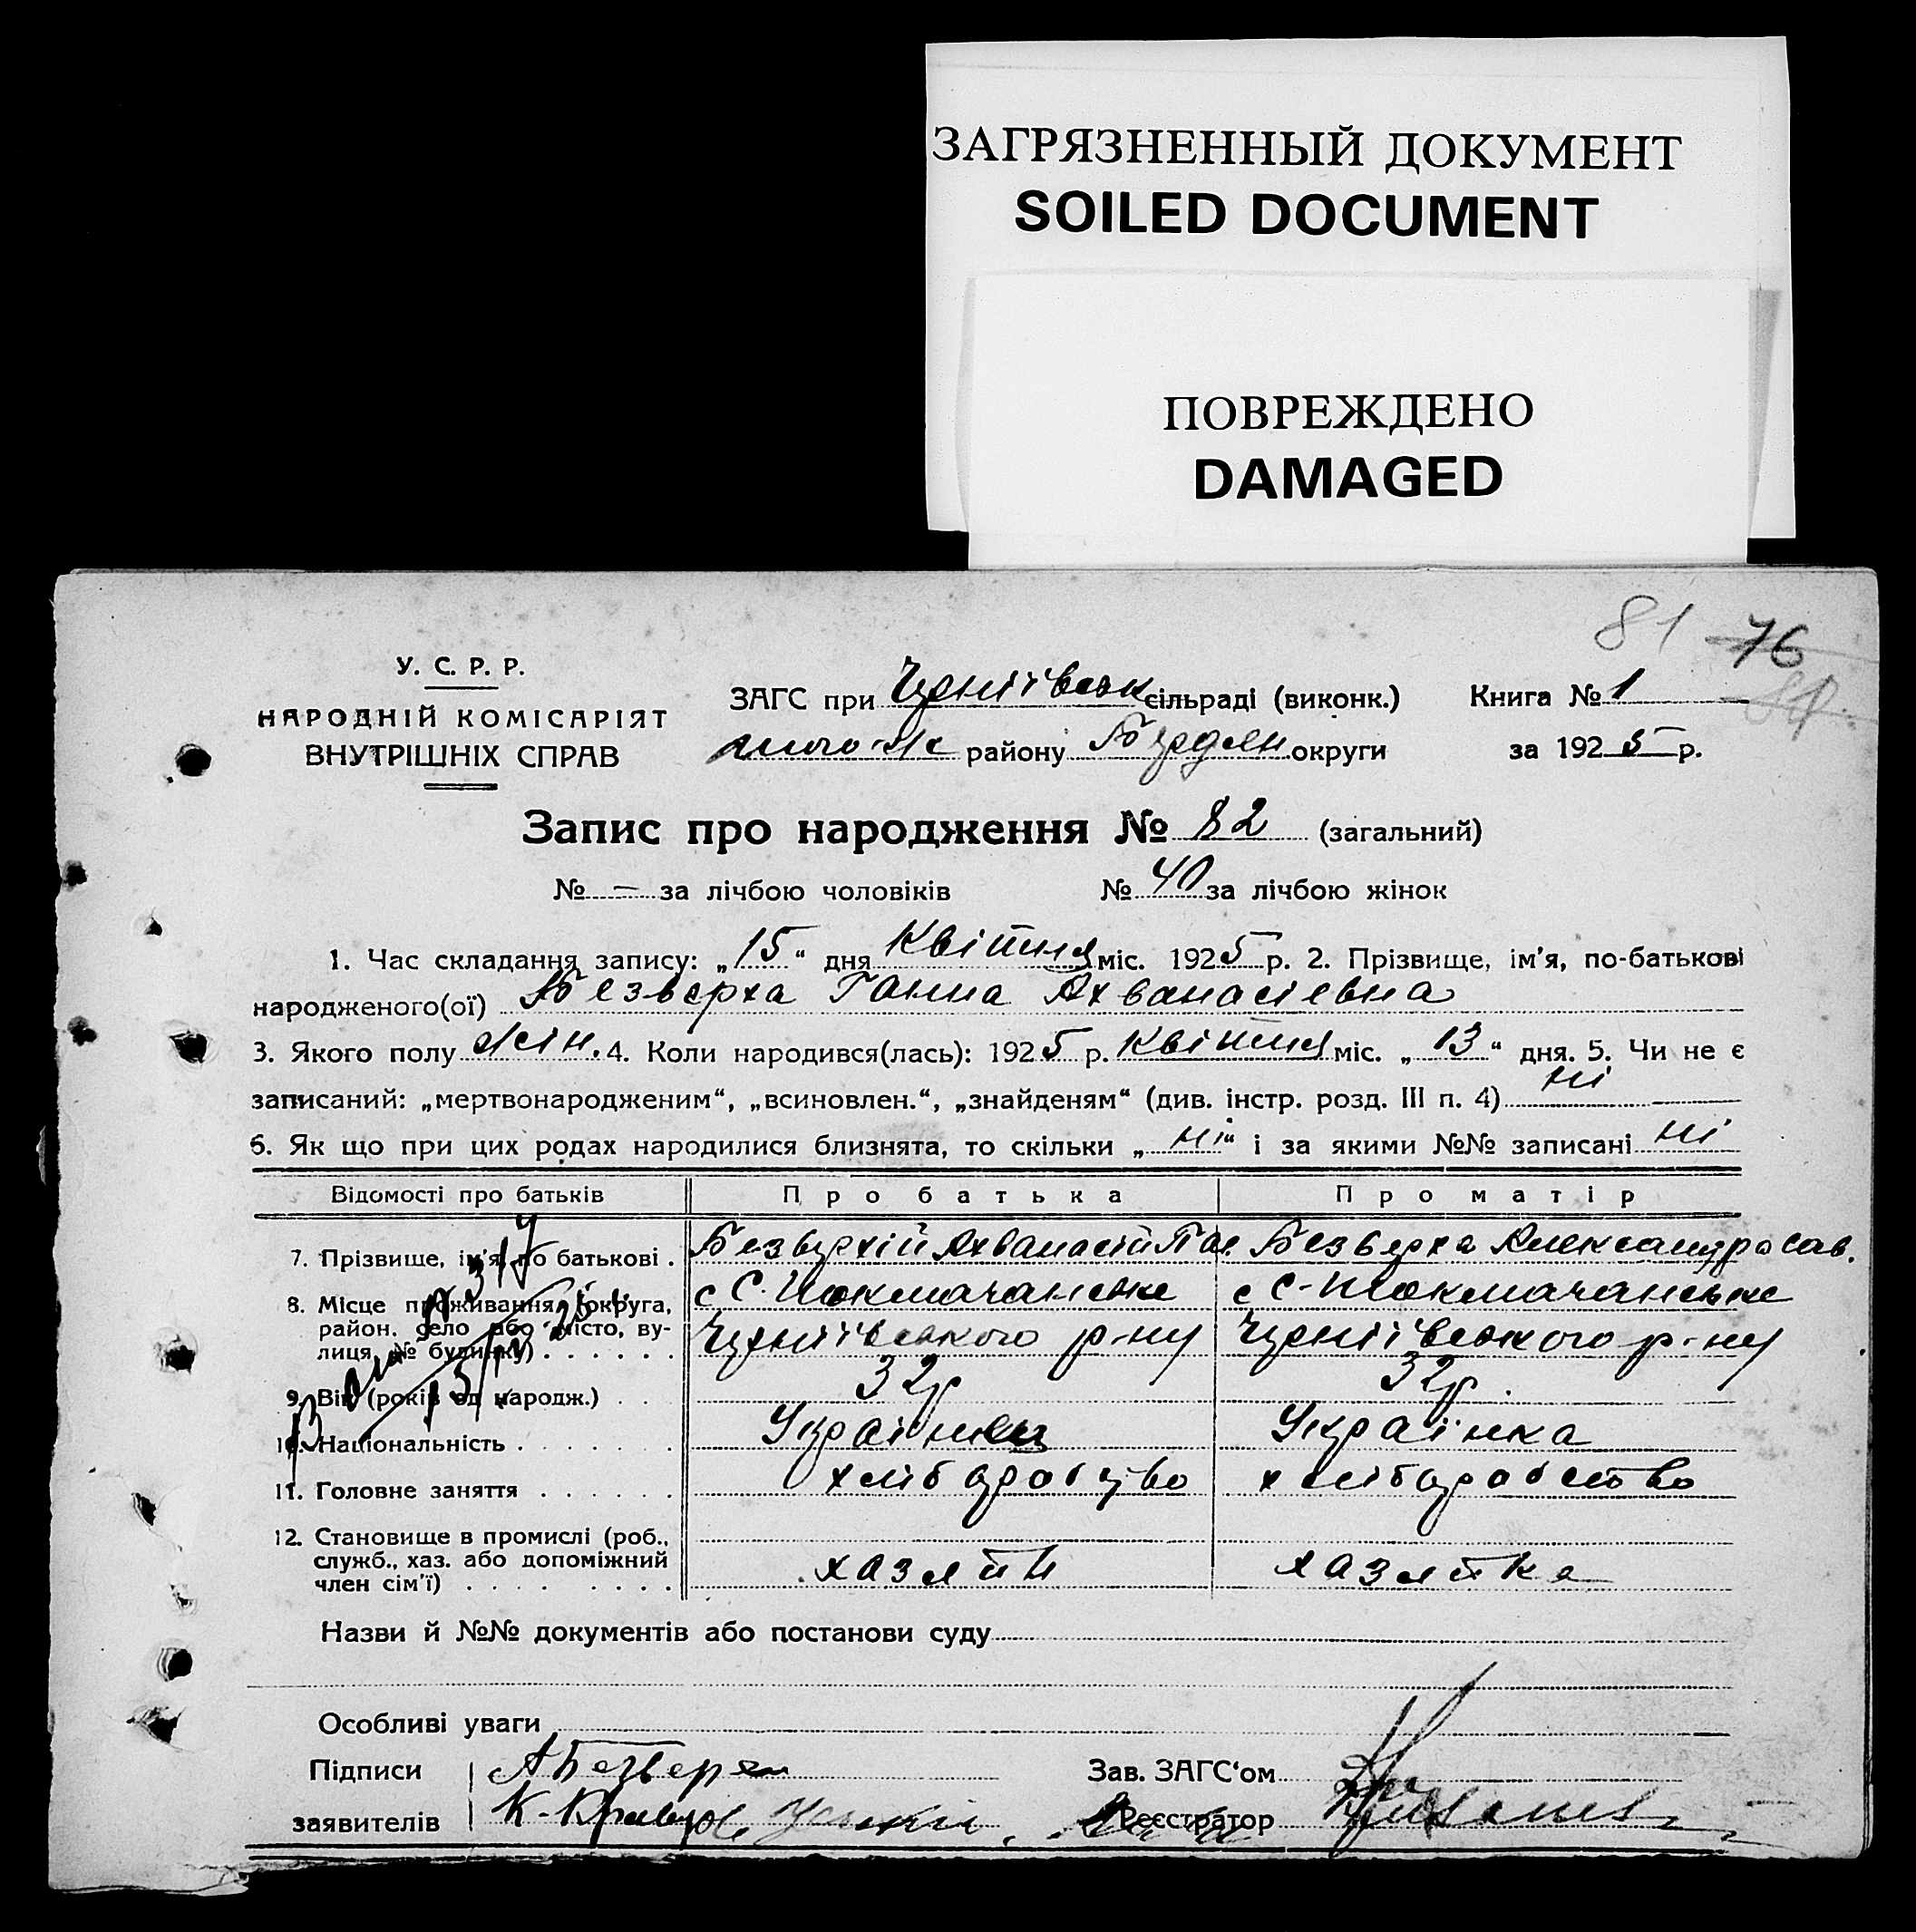 ЗАГРЯЗНЕННЫЙ ДОКУМЕНТ
SOILED DOCUMENT
ПОВРЕЖДЕНО
DAMAGED
81 76
У. С. Р. Р.
НАРОДНІЙ КОМІСАРІЯТ
ВНУТРІШНІХ СПРАВ
ЗАГС при Черніївськ сільраді (виконк.) Книга № 1
району Бердян округи за 1925 р.
Запис про народження № 82 (загальний)
№ – за лічбою чоловіків № 40 за лічбою жінок
1. Час складання запису: „15“ дня Квітня міс. 1925 р. 2. Прізвище, ім'я, по-батькові
народженого(ої) Безверха Ганна Ахванасіевна
3. Якого полу жін. 4. Коли народився(лась): 1925 р. Квітня міс. „13“ дня. 5. Чи не є
записаний: „мертвонародженим“, „всиновлен.“, „знайденям“ (див. інстр. розд. III п. 4) ні
6. Як що при цих родах народилися близнята, то скільки „ні“ і за якими №№ записані ні
Відомості про батьків Про батька Про матір
7. Прізвище, ім'я, по батькові . Безверхій Ахванасій Пав. Безверха Александра Сав.
8. Місце проживання (округа, с С. Токмачанське с С-Токмачанське
район, село або місто, ву-
лиця, № будинку) . . . . . . Черніївського р-ну Черніївського р-ну
9. Вік (років од народж.) . . 32р 32р.
10. Національність . . . . . . . Українец Українка
11. Головне заняття . . . . . . хліборобство хліборобство
12. Становище в промислі (роб.,
служб., хаз. або допоміжний
член сім'ї) . . . . . . . . . хазяїн хазяйка
Назви й №№ документів або постанови суду
Особливі уваги
Підписи А Безверхи Зав. ЗАГС'ом
заявителів К. Реєстратор